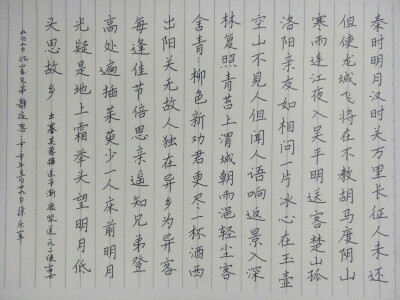 秦时明月汉时关万里长征人未还
但使龙城飞将在不教胡马度阴山
寒雨连江夜入吴平明送客楚山孤
洛阳亲友如相问一片冰心在玉壶
空山不见人但闻人语响返景入深
林复照青苔上渭城朝雨浥轻尘客
舍青：柳色新劝君更尽一杯酒西
出阳关无故人独在异乡为异客
每逢佳节倍思亲遥知兄弟登
高处遍插茱萸少一人床前明月
光疑是地上霜举头望明月低
头思故乡 出塞芙蓉楼送辛渐鹿柴送元二使安西
九月九日忆山东兄弟静夜思